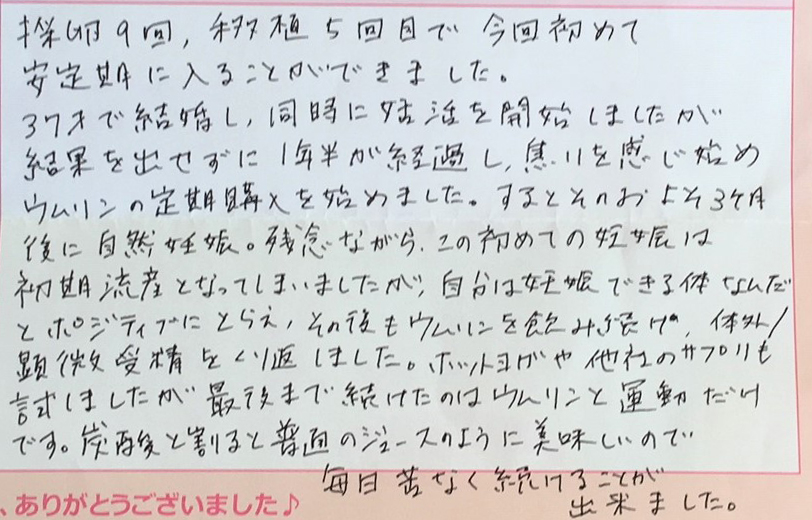 採卵9回,移植5回目で今回初めて
安定期に入ることができました。
37才で結婚し,同時に妊活を開始しましたが
結果を出せずに1年半が経過し,焦りを感じ始め
ウムリンの定期購入を始めました。するとそのおよそ3ヶ月
後に自然妊娠。残念ながら、この初めての妊娠は
初期流産となってしまいましたが,自分は妊娠できる体なんだ
とポジティブにとらえ,その後もウムリンを飲み続け,体外/
顕微受精をくり返しました。ホットヨガや他社のサプリも
試しましたが最後まで続けたのはウムリンと運動だけ
です。炭酸と割ると普通のジュースのように美味しいので
毎日苦なく続けることが
出来ました。
、ありがとうございました♪